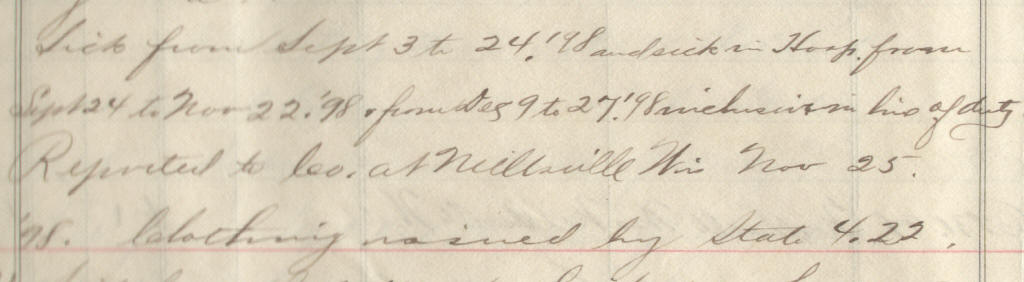 Sick from Sept 3 to 24, '98 and sick in Hosp. from
Sept 24 to Nov 22. '98 & from Dec 9 to 27. '98 inclusive in line of duty
Reported to Co. at Neillsville Wis Nov 25.
'98. Clothing issued by State 4.22.